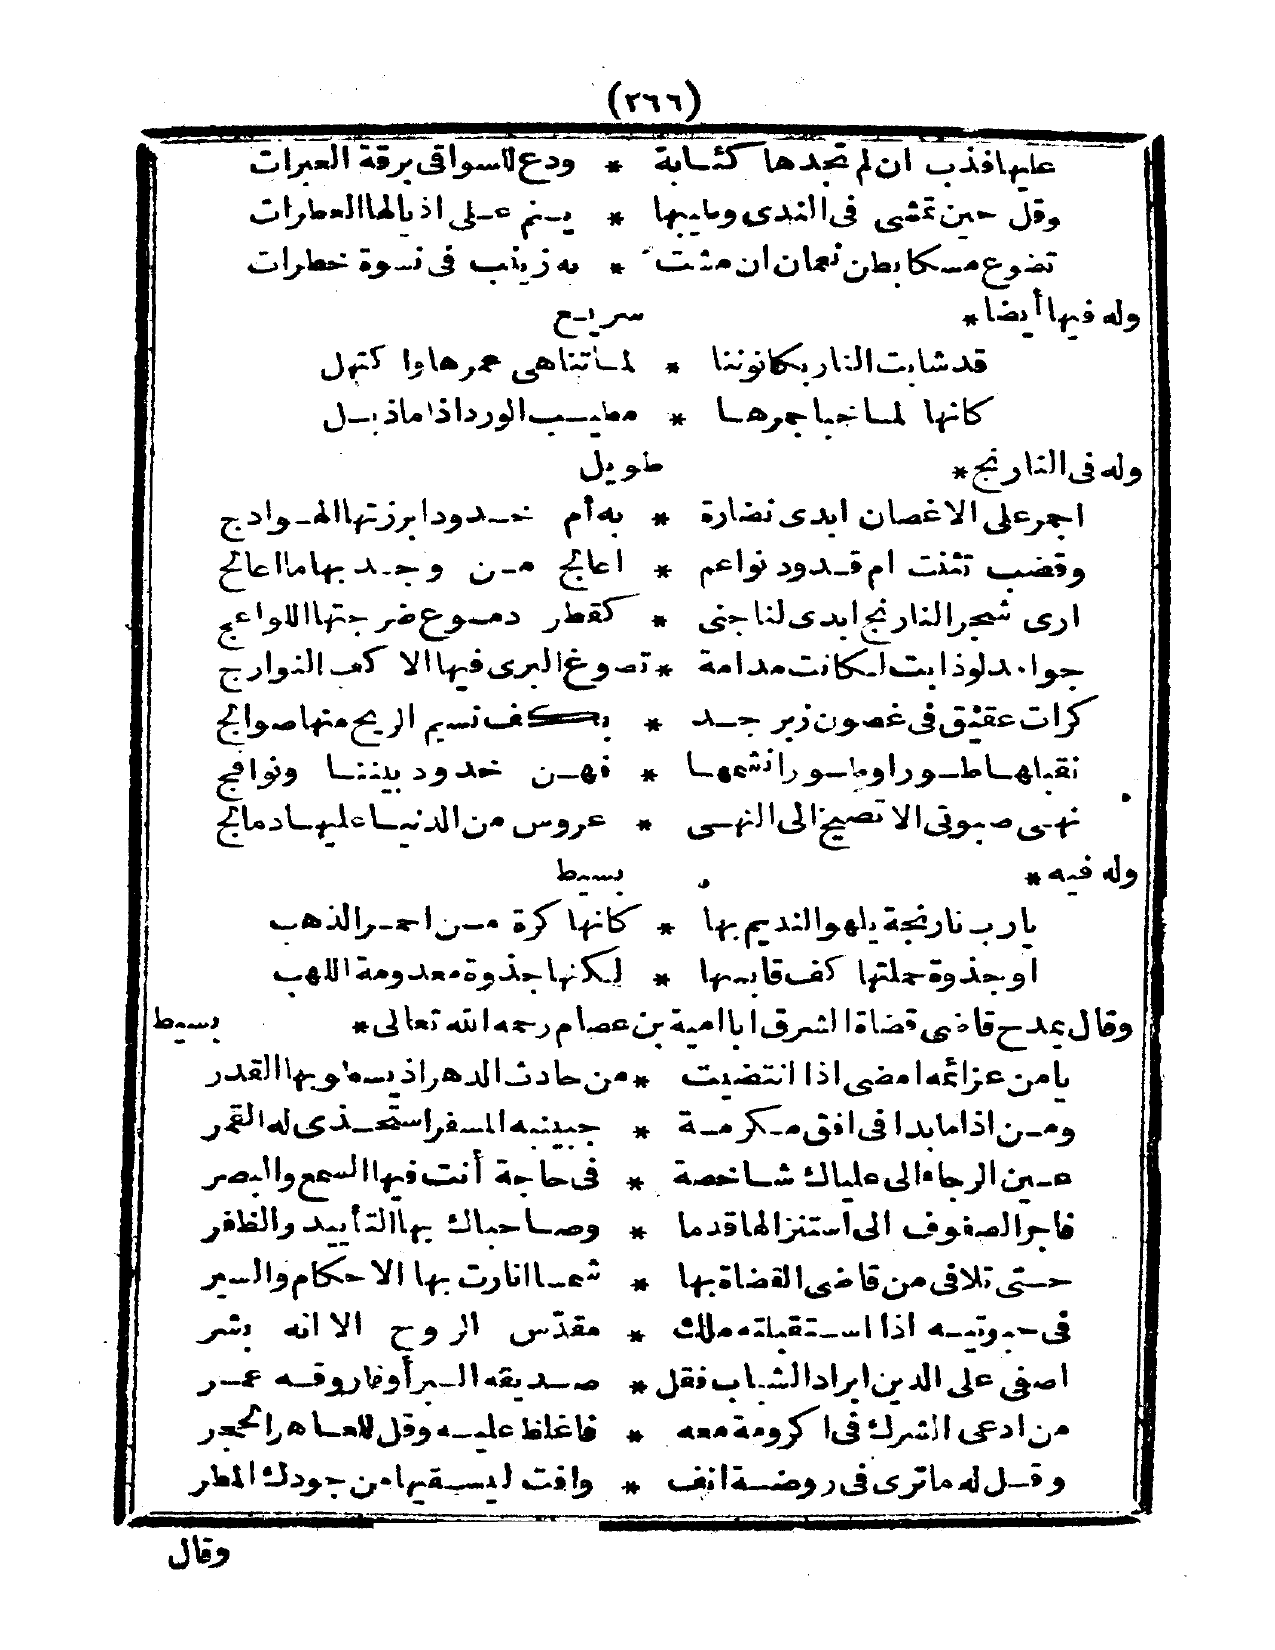 (٢٦٦)
عليها فذب ان لم تجدها كئابة * ودع للسواقى برقة العبرات
وقل حين تمشى فى الندى وطيبها * ينم على اذيالها العطرات
تضوع مسكا بطن نعمان ان مشت * به زينب فى نسوة خطرات
وله فيها أيضا * سريع
قد شابت النار بكانوننا * لما تناهى عمرها واكتهل
كانها لما خبا جمرها * مطيب الورد اذا ما ذبل
وله فى النارنج * طويل
اجمر على الاغصان ابدى نضارة * به أم خدود ابرزتها الهوادج
وقضب تثنت ام قدود نواعم * اعالج من وجد بها ما اعالج
ارى شجر النارنج ابدى لنا جنى * كقطر دموع ضرجتها اللواعج
جوامد لو ذابت لكانت مدامة * تصوغ البرى فيها الاكف النوارج
كرات عقيق فى غصون زبرجد * بكف نسيم الريح منها صوالج
نقبلها طورا وطورا نشمها * فهن خدود بيننا ونوافج
نهى صبوتى الا تصيخ الى النهى * عروس من الدنيا عليها دمالج
وله فيه * بسيط
يارب نارنجة يلهو النديم بها * كانها كرة من احمر الذهب
او جذوة حملتها كف قابسها * لكنها جذوة معدومة اللهب
وقال يمدح قاضى قضاة الشرق ابا امية بن عصام رحمه الله تعالى * بسيط
يا من عزائمه امضى اذا انتضيت * من حادث الدهر اذ يسطو بها القدر
ومن اذا ما بدا فى افق مكرمة * جبينه المسفر استخذى له القمر
عين الرجاء الى علياك شاخصة * فى حاجة أنت فيها السمع والبصر
فاجر الصفوف الى استنزالها قدما * وصاحباك بها التأييد والظفر
حتى تلاقى من قاضى القضاة بها * شمسا انارت بها الاحكام والسير
فى حبوتيه اذا استقبلته ملك * مقدّس الروح الا انه بشر
اصفى على الدين ابراد الشباب فقل * صديقه البر أو فاروقه عمر
من ادعى الشرك فى اكرومة معه * فاغلظ عليه وقل للعاهر الحجر
وقل له ما ترى فى روضة انف * وافت ليسقيها من جودك المطر
وقال